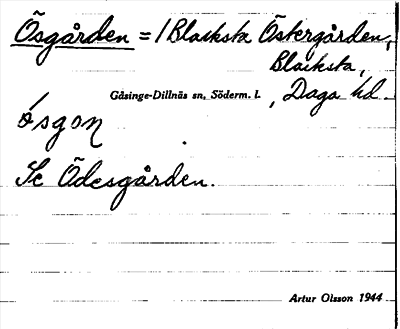 Ösgården = 1 Blacksta Östergården,
Blacksta,
Gåsinge-Dillnäs sn, Söderm. l. , Daga hd.
ósgoɳ
Se Ödesgården.
Artur Olsson 1944